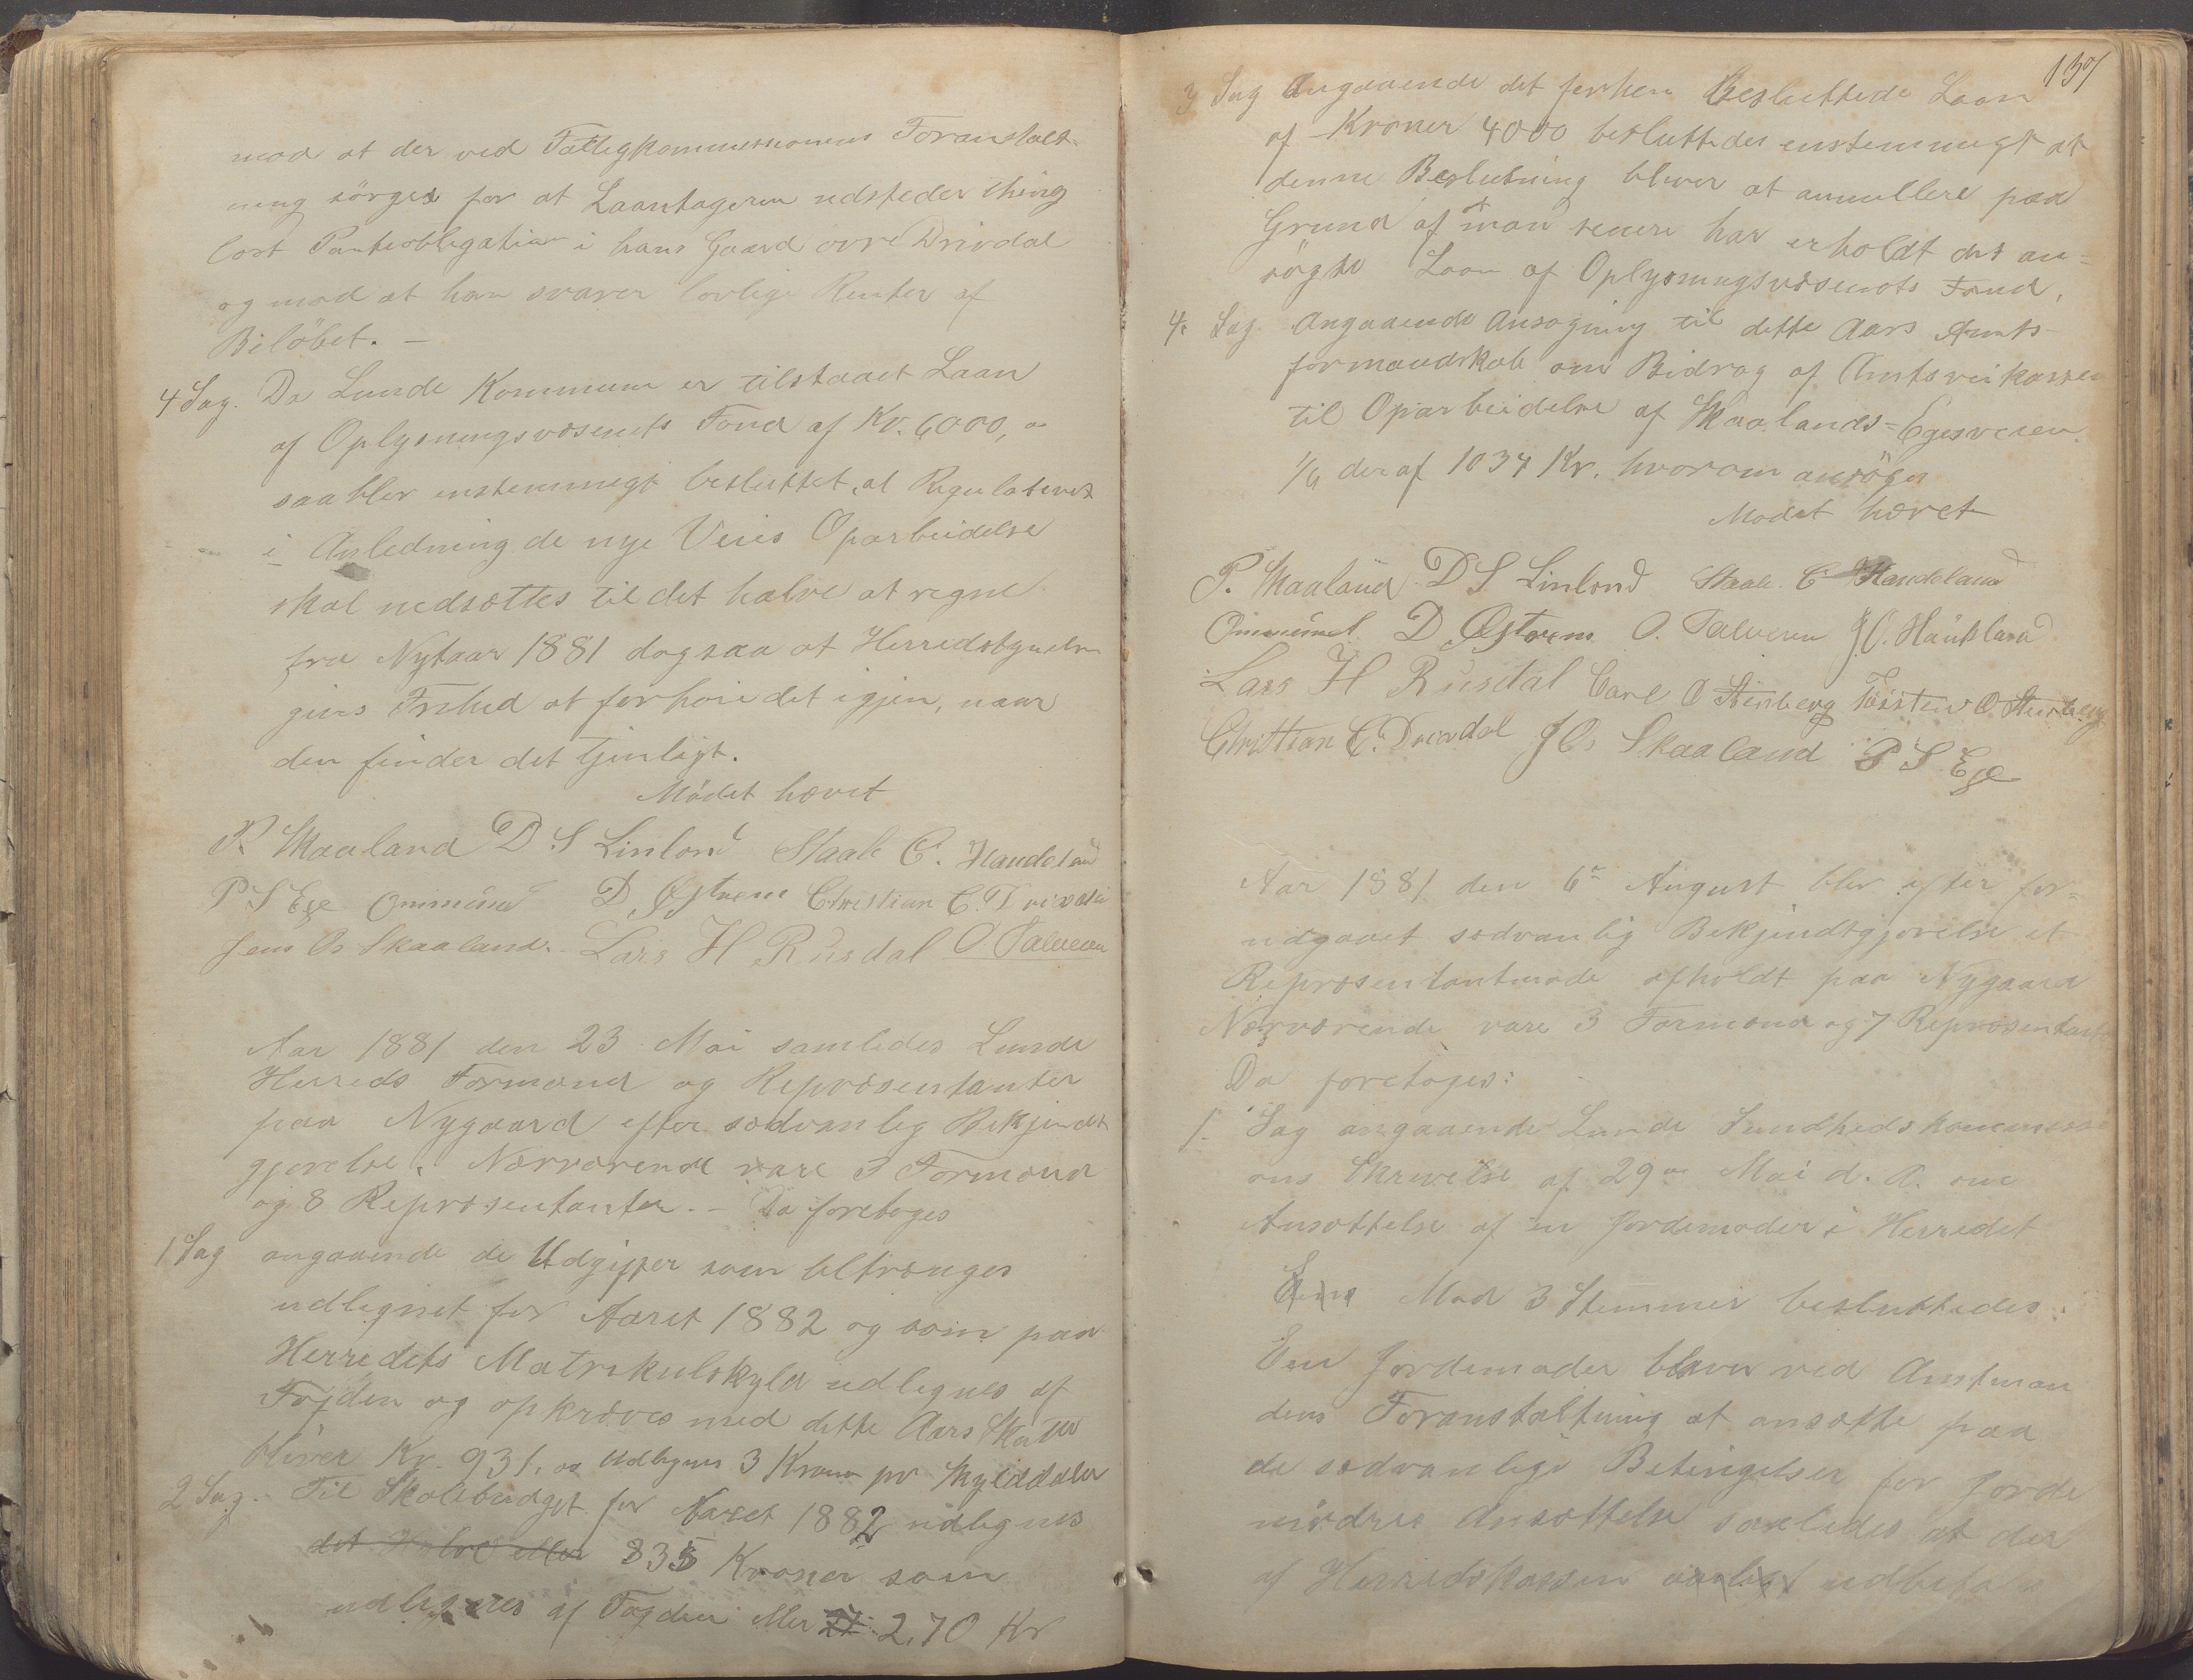 mod at der ved Fattigkommissionens Foranstalt-
ning sörges for at Laantageren udsteder thing
læst Panteobligation i hans Gaard ovre Drivdal
og mod at han svarer lovlige Renter af
Belöbet. –
4 Sag. Da Lunde Kommune er tilstaaet Laan
af Oplysningsvæsenets Fond af Kr. 6000,
saa blev enstemmigt besluttet, at Regulativet
i Anledning de nye Veies Oparbeidelse
skal nedsættes til det halve at regne
fra Nytaar 1881 dog saa at Herredstyrelsen
gives Frihed at forhøie det igjen, naar
den finder det tjenligt.
Mödet hævet
P. Skaaland D S Linlond Staale C. Haudeland
P S Ege Ommund D Østrem Christian C. Drivdal
Jens Os Skaaland. Lars H Rusdal O Salveson
Aar 1881 den 23 Mai samledes Lunde
Herreds Formænd og Repræsentanter
paa Nygaard efter sædvanlig Bekjendt
gjørelse. Nærværende vare 3 Formænd
og 8 Repræsentanter. – Da foretoges
1 Sag angaaende de Udgifter som tiltrænges
udlignet for Aaret 1882 og som paa
Herredets Matrikulskyld udlignes af
Fogden og opkræves med dette Aars Skatter
bliver Kr. 931, og udlignes 3 Kroner pr Skylddaler
2 Sag. Til Skolebudget for Aaret 1882 udlignes
det Halve eller 835 Kroner som
udlignes af Fogden eller 27 2,70 Kr
137
3 Sag Angaaende det forhen Besluttede Laan
af Kroner 4000 besluttedes enstemmigt at
denne Beslutning bliver at annullere paa
Grund af man senere har erholdt det an-
søgte Laan af Oplysningsvæsenets Fond,
4. Sag. Angaaende Ansøgning til dette Aars Amts-
formandskab om Bidrag af Amtsveikassen
til Oparbeidelse af Skaalands-Egesveien
1/6 deraf 1034 Kr. hvorom ansöges
Mødet hævet
P. Skaaland D S Linlond Staale C Haudeland
Ommund D. Østrem O. Salveson J O. Haukland
Lars H Rusdal Carl O Stenberg Tosten O Stenberg
Christian C. Drivdal J Os Skaaland P S Ege
Aar 1881 den 6te August blev efter for-
udgaaet sædvanlig Bekjendtgjørelse et
Repræsentantmøde afholdt paa Nygaard
Nærværende vare 3 Formænd og 7 Repræsentanter
Da foretoges:
1. Sag angaaende Lunde Sundhedskommissi
ons Skrivelse af 29de Mai d. A. om
Ansættelse af en Jordemoder i Herredet
Mod 3 Stemmer besluttedes:
Een Jordemoder bliver ved Amtman
dens Foranstaltning at ansætte paa
de sædvanlige Betingelser for Jorde
mødres Ansættelse saaledes at der
af Herredskassen aarligt udbetales